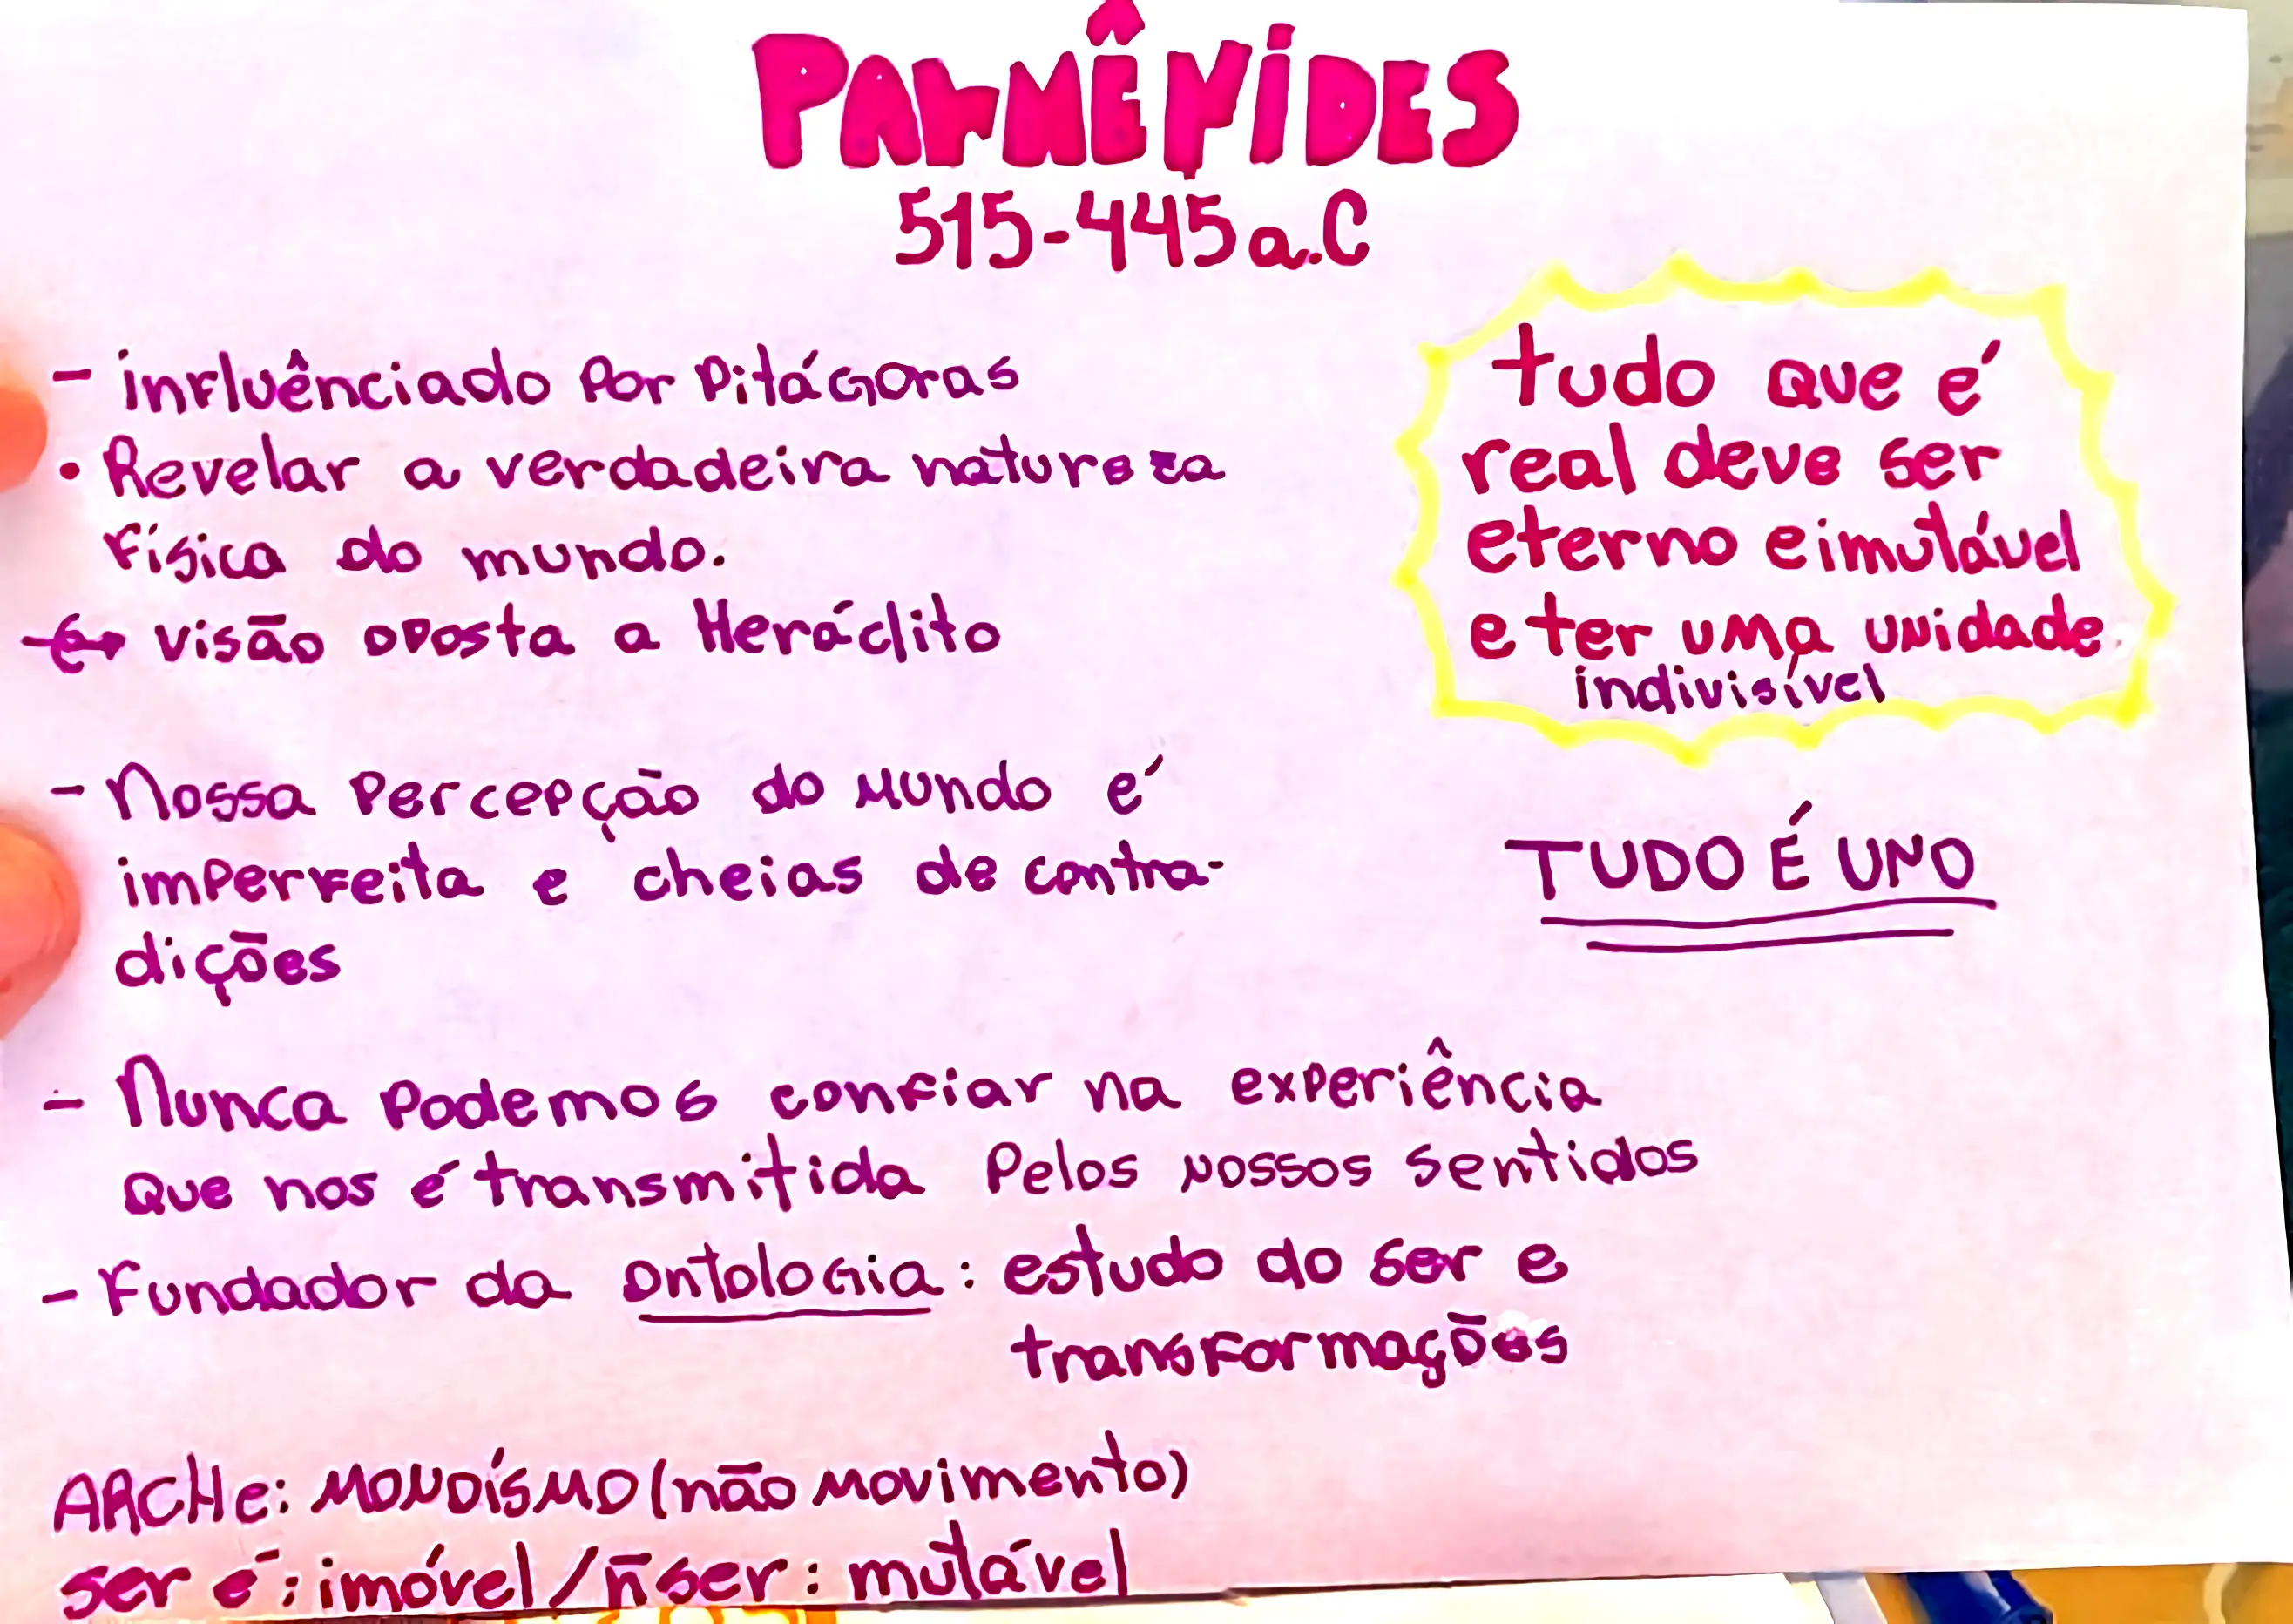 PARMÊNIDES
515-445 a.C
- influênciado por Pitágoras
• Revelar a verdadeira natureza
física do mundo.
visão oposta a Heráclito
tudo que é
real deve ser
eterno e imutável
e ter uma unidade
indivisível
- Nossa percepção do mundo é
imperfeita e cheias de contra-
dições
TUDO É UNO
- Nunca podemos confiar na experiência
que nos é transmitida pelos nossos sentidos
- Fundador da Ontologia: estudo do ser e
transformações
ARCHe: MONOÍSMO (não movimento)
ser é: imóvel / ñ ser: mutável